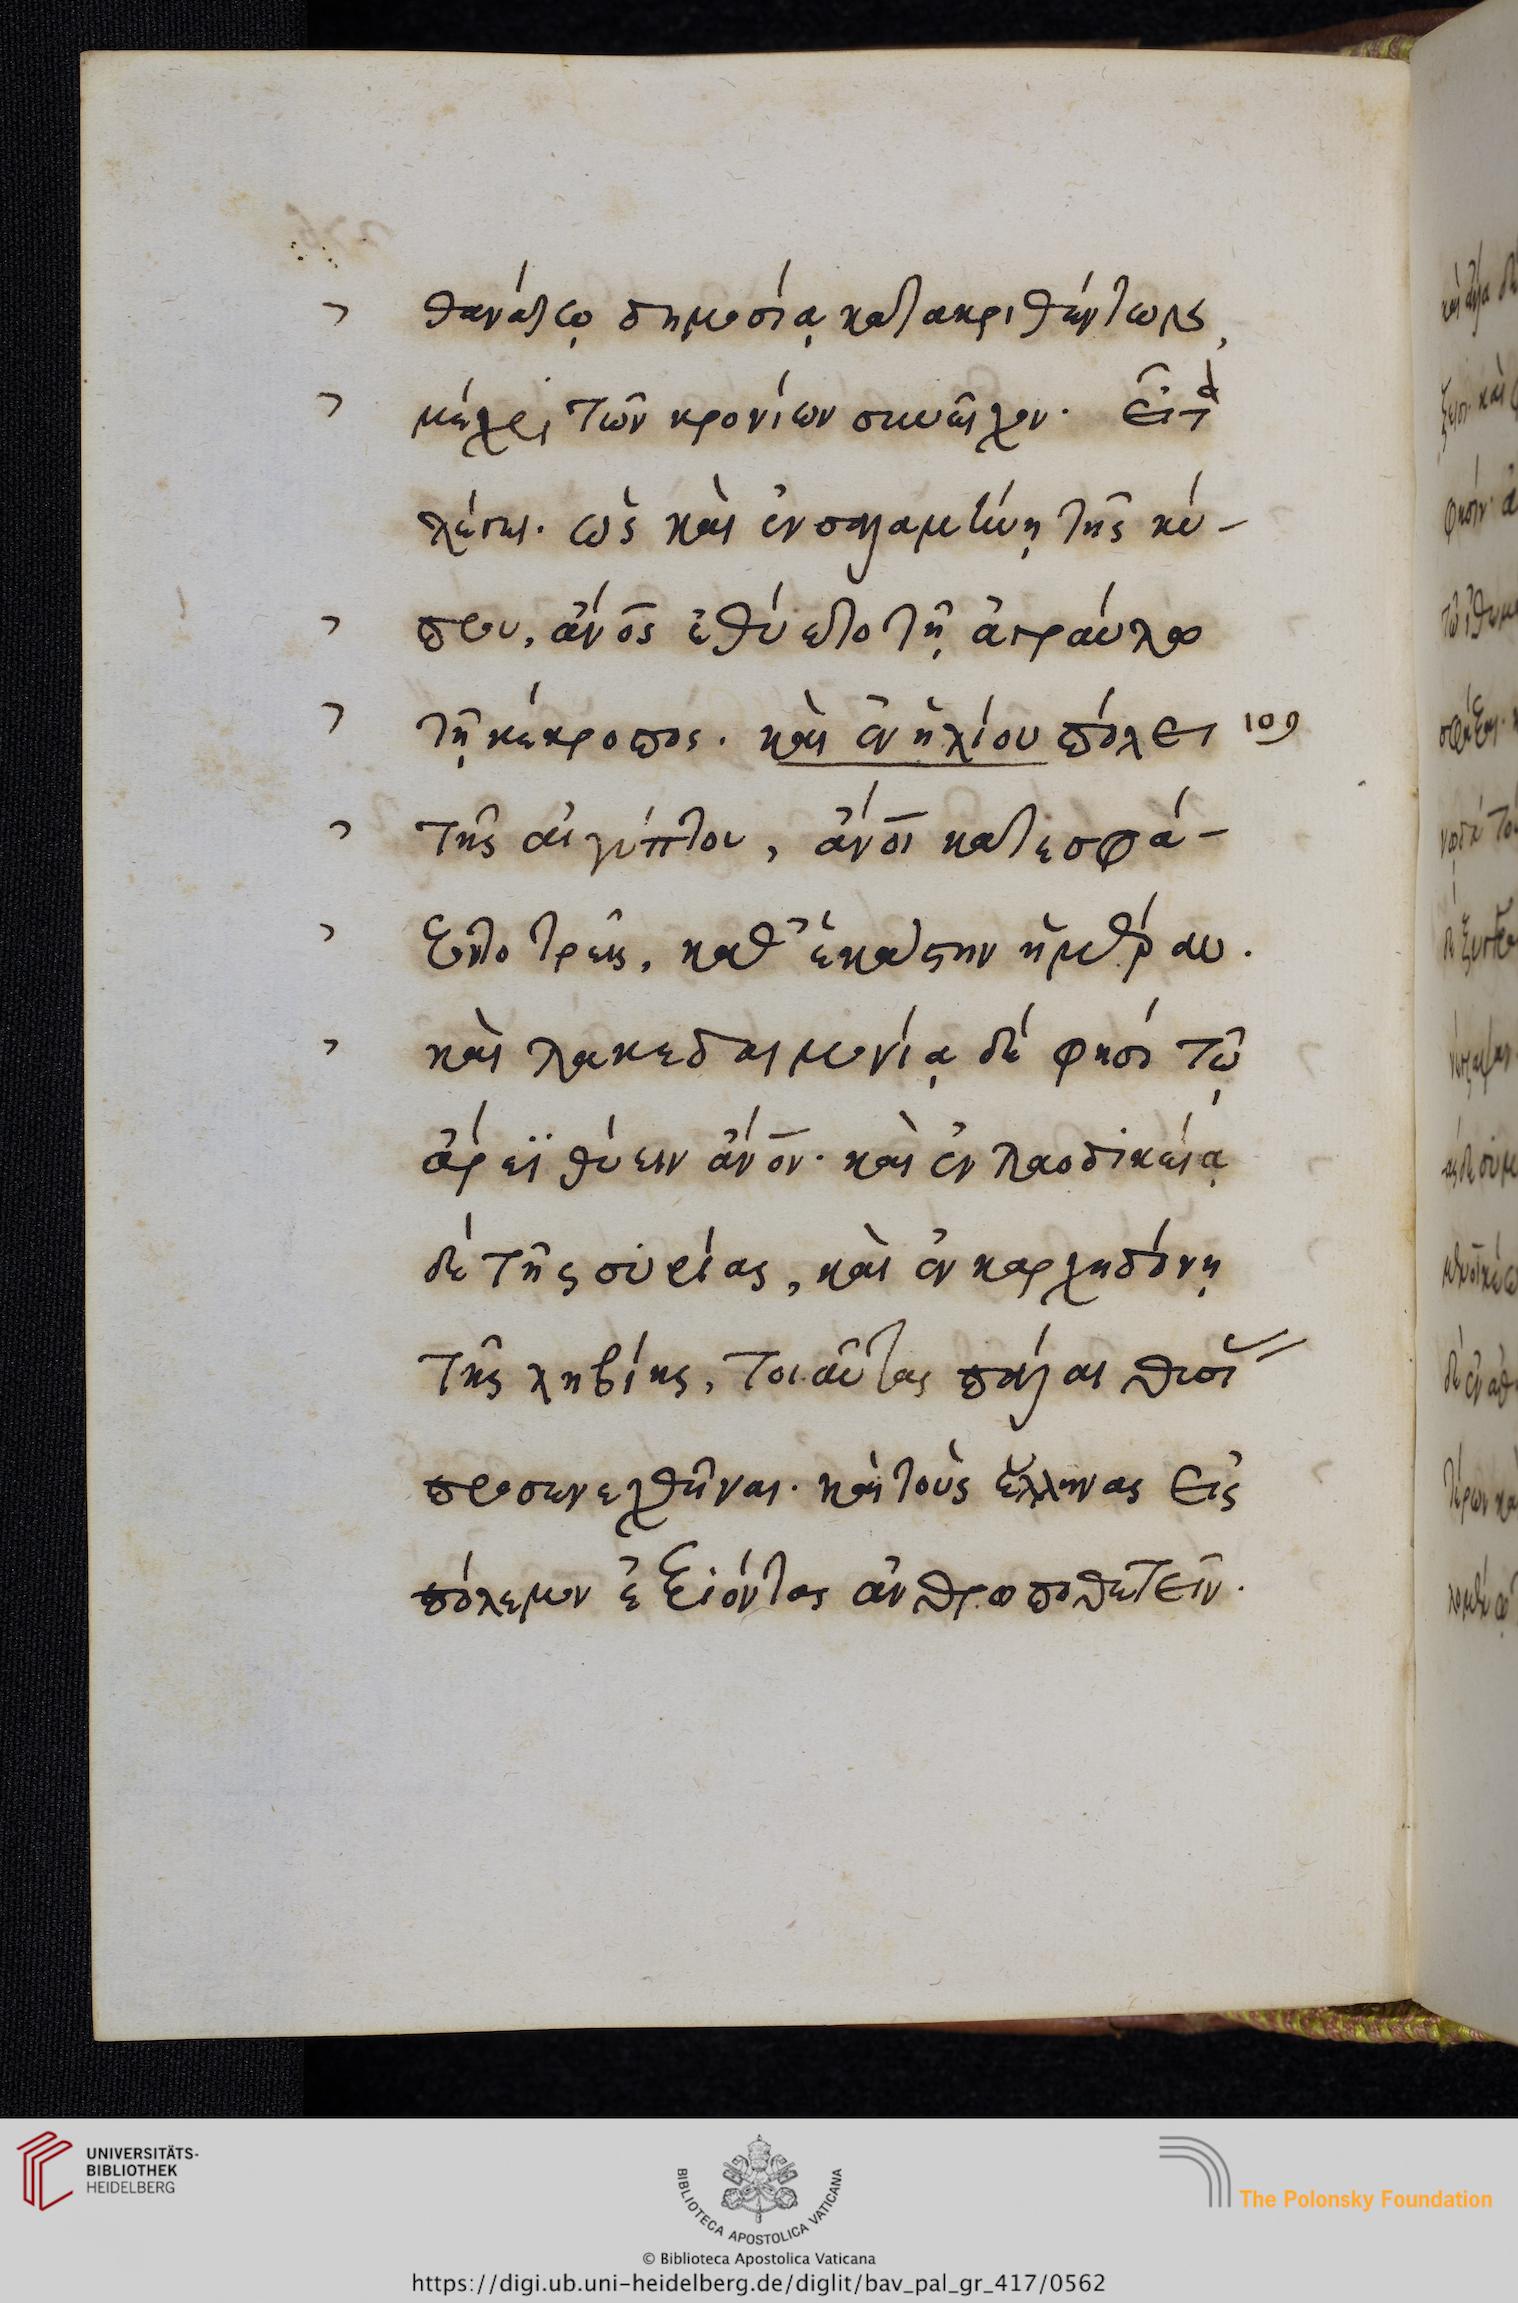 θανάτῳ δημοσίᾳ κατακριθέντων,
μέχρι τῶν κρονίων συνεῖχον. εἶτα
λέγει. ὡς καὶ ἐν σαλαμίνῃ τῆς κύ-
πρου, ἄνος ἐθύετο τῇ ἀγραύλῳ
τῇ κέκροπος. καὶ ἐν ἡλίου πόλει 109
τῆς αἰγύπτου, ἄνοι κατεσφά-
ζοντο τρεῖς, καθ' ἑκάστην ἡμέραν.
καὶ λακεδαιμονίᾳ δέ φησι τῷ
ἄρεϊ θύειν ἄνον. καὶ ἐν λαοδικείᾳ
δὲ τῆς συρίας, καὶ ἐν καρχηδόνῃ
τῆς ληβίης, τοιαῦτας πάλαι
προσενεχθῆναι. καὶ τοὺς ἕλληνας εἰς
πόλεμον ἐξιόντας ἀνθρωποθετεῖν.
UNIVERSITÄTS-
BIBLIOTHEK
HEIDELBERG
BIBLIOTECA APOSTOLICA VATICANA
The Polonsky Foundation
© Biblioteca Apostolica Vaticana
https://digi.ub.uni-heidelberg.de/diglit/bav_pal_gr_417/0562